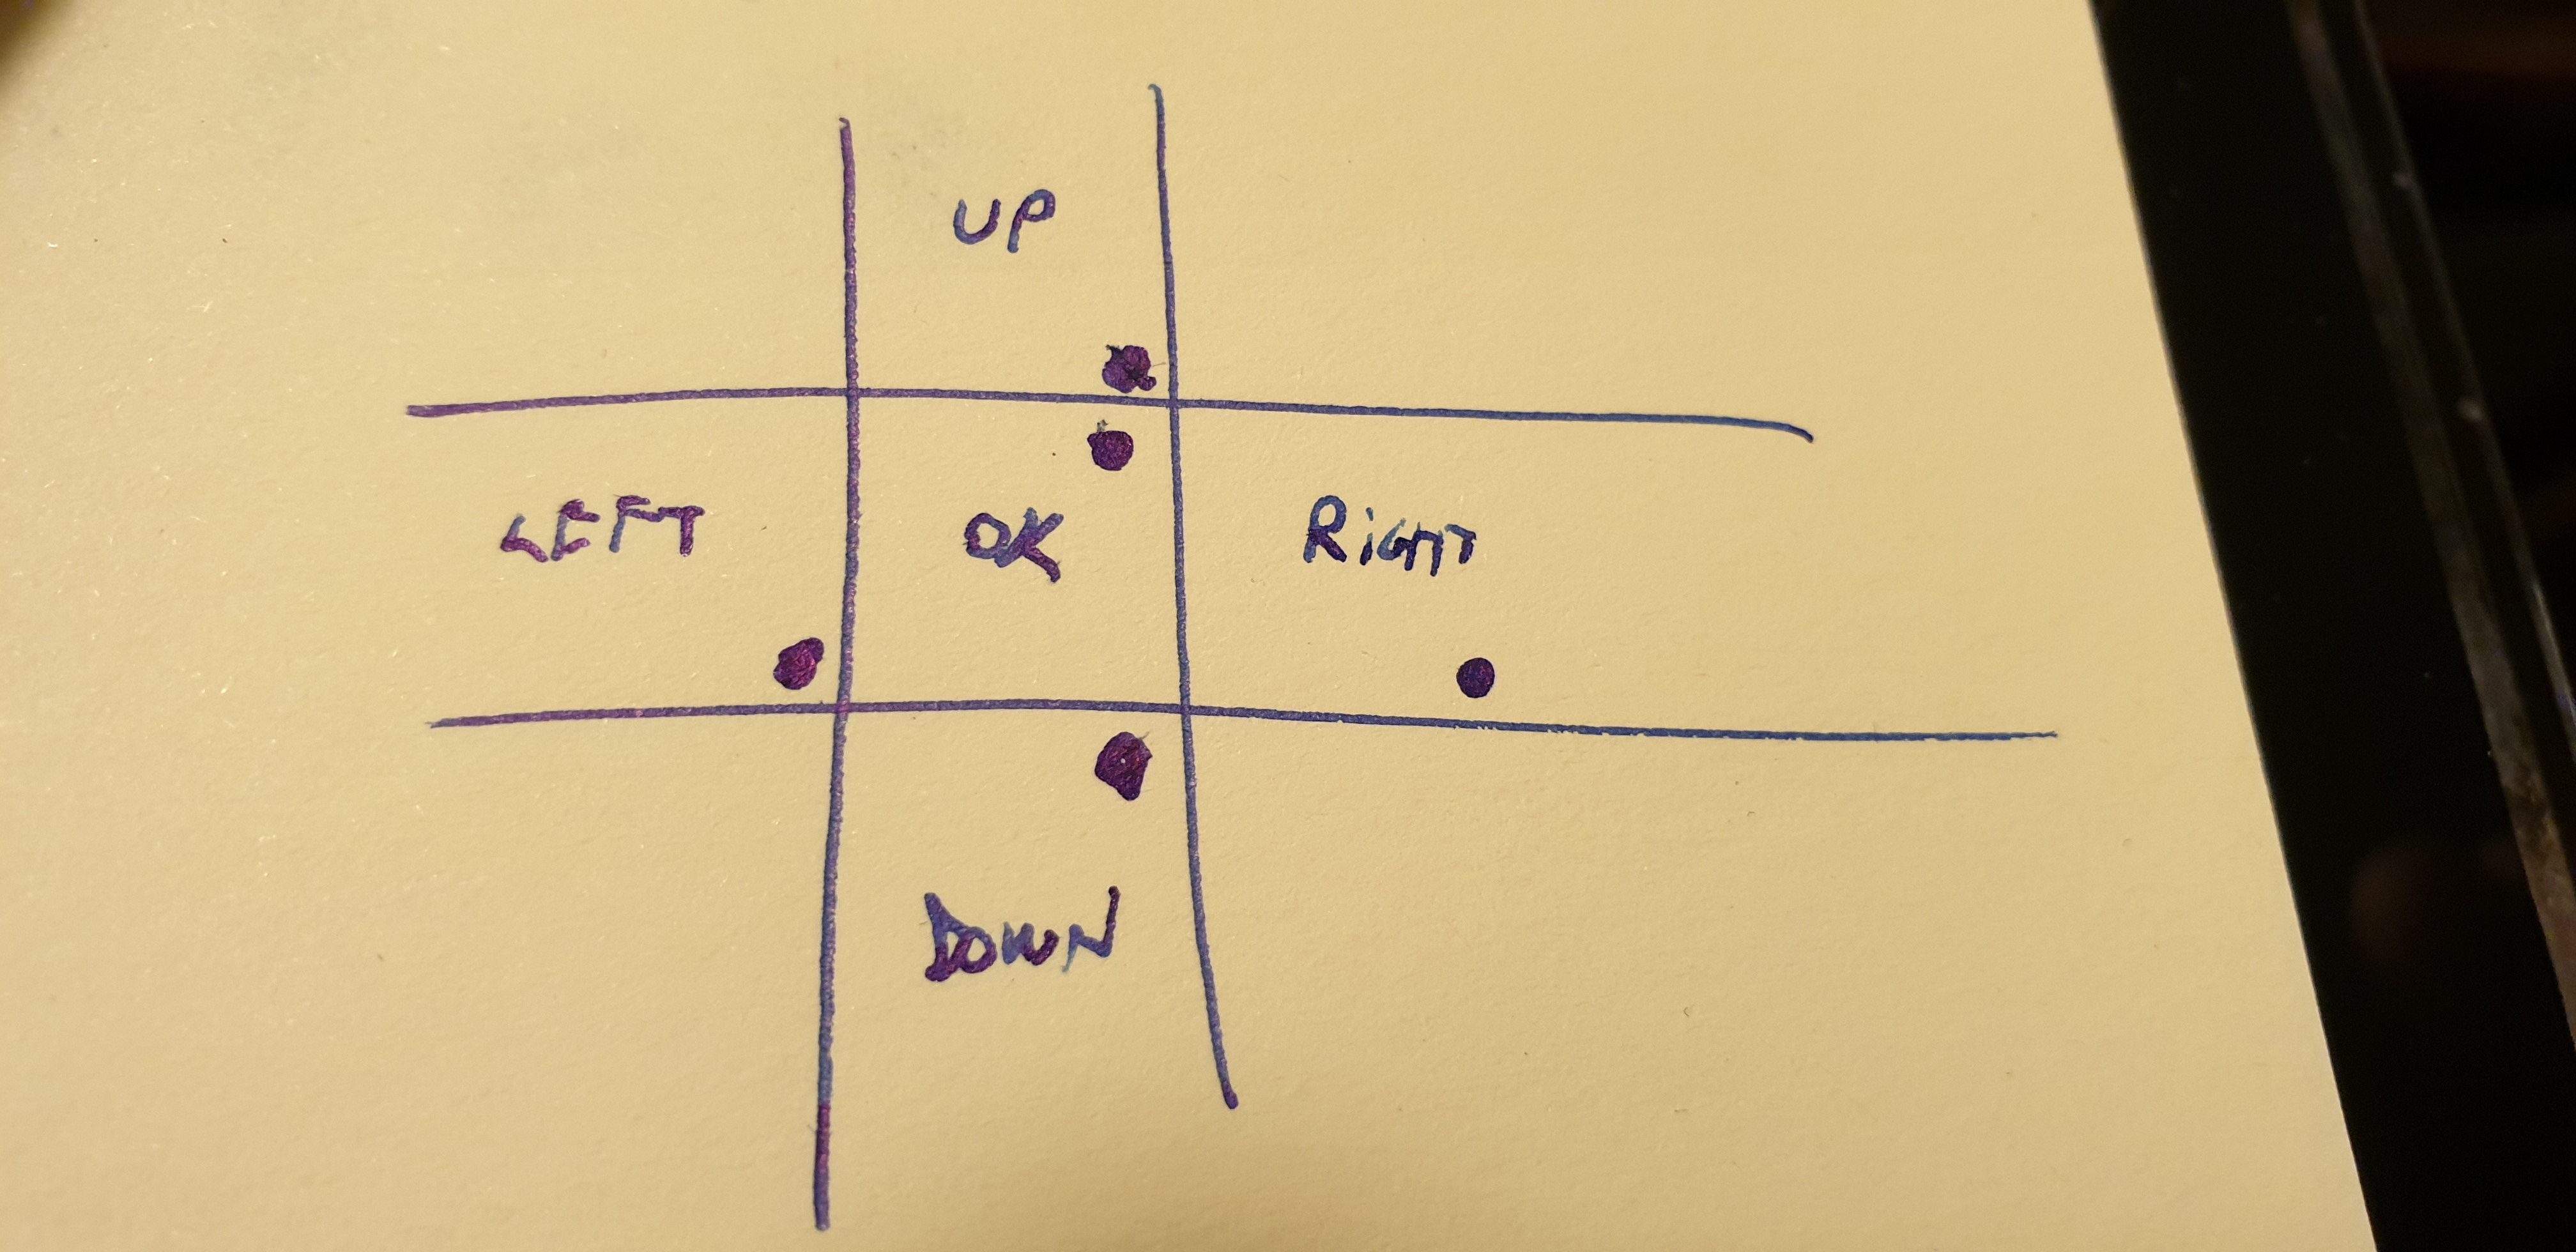 UP
LEFT OK RIGHT
DOWN